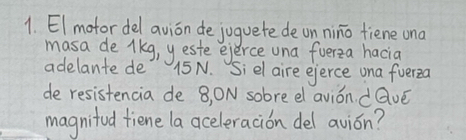 1. El motor del avión de juguete de un niño tiene una
masa de 1kg, y este ejerce una fuerza hacia
adelante de 15N. Si el aire ejerce una fuerza
de resistencia de 8,0N sobre el avión ¿Qué
magnitud tiene la aceleración del avión?